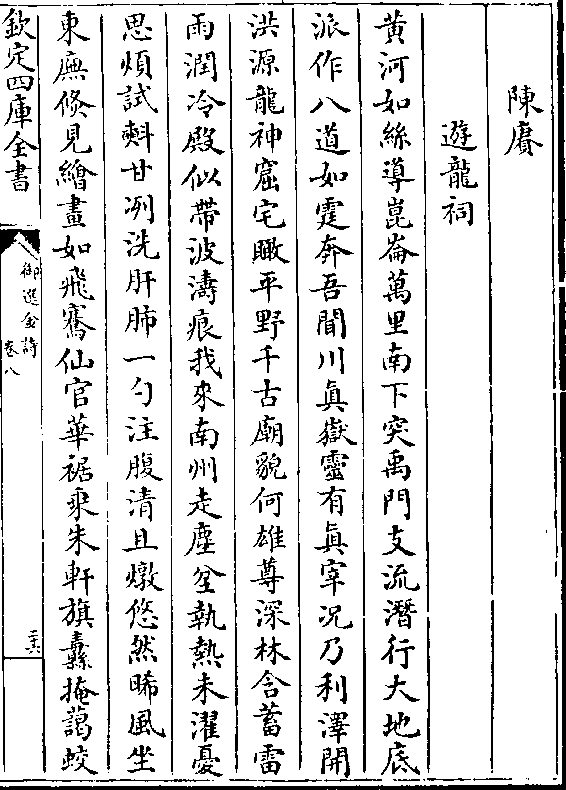 陳賡
遊龍祠
黄河如絲導崑崙萬里南下突禹門支流潛行大地底
派作八道如霆奔吾聞川真嶽靈有真宰况乃利澤開
洪源龍神窟宅瞰平野千古廟貌何雄尊深林含蓄雷
雨潤冷殿似帶波濤痕我來南州走塵坌執熱未濯憂
思煩試㪺甘冽洗肝肺一勺注腹清且燉悠然晞風坐
東廡倐見繪畫如飛騫仙官華裾乘朱軒旗纛掩藹蛟
欽定四庫全書
御選金詩
卷八
三六